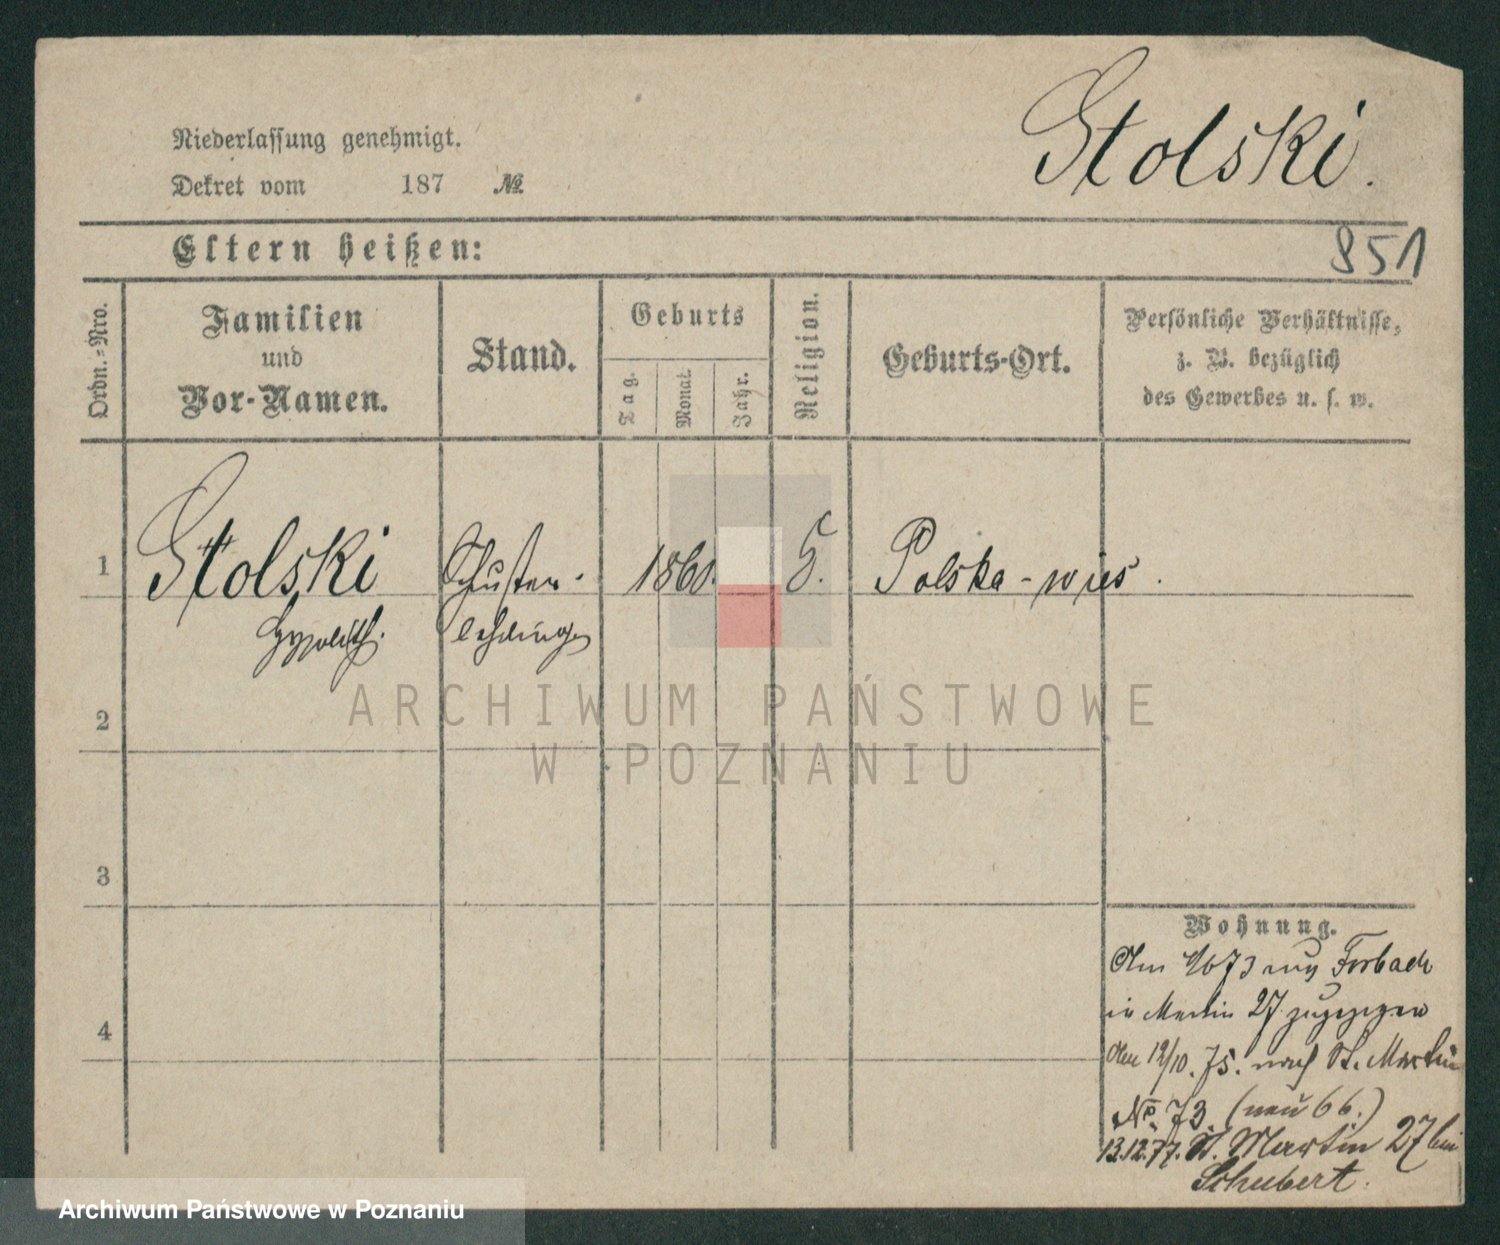 Stolski.
Niederlassung genehmigt.
Dekret vom 187 №
Eltern heißen:
851
Ordn.=Nro.
Familien
und
Vor-Namen.
Stand.
Geburts
Tag.
Monat.
Jahr.
Religion.
Geburts-Ort.
Persönliche Verhältnisse,
z. B. bezüglich
des Gewerbes u. s. w.
1
Stolski
Hyppolith.
Schuster-
lehrling
1860.
Polska-wies.
2
3
4
Wohnung.
in Martin 27 zugezogen
Am 12/10. 75. nach St. Martin
No. 73. (neu 66.)
13.12.77. St. Martin 27 bei
Schubert.
ARCHIWUM PAŃSTWOWE
W POZNANIU
Archiwum Państwowe w Poznaniu